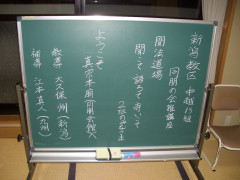 新潟教区 中越13組
同朋の会推進講座
聞法道場
聞こう 語ろう 寺いって
ようこそ
真宗本廟同朋会館へ
教導 大久保 州(新潟)
補導 江本 真人(九州)